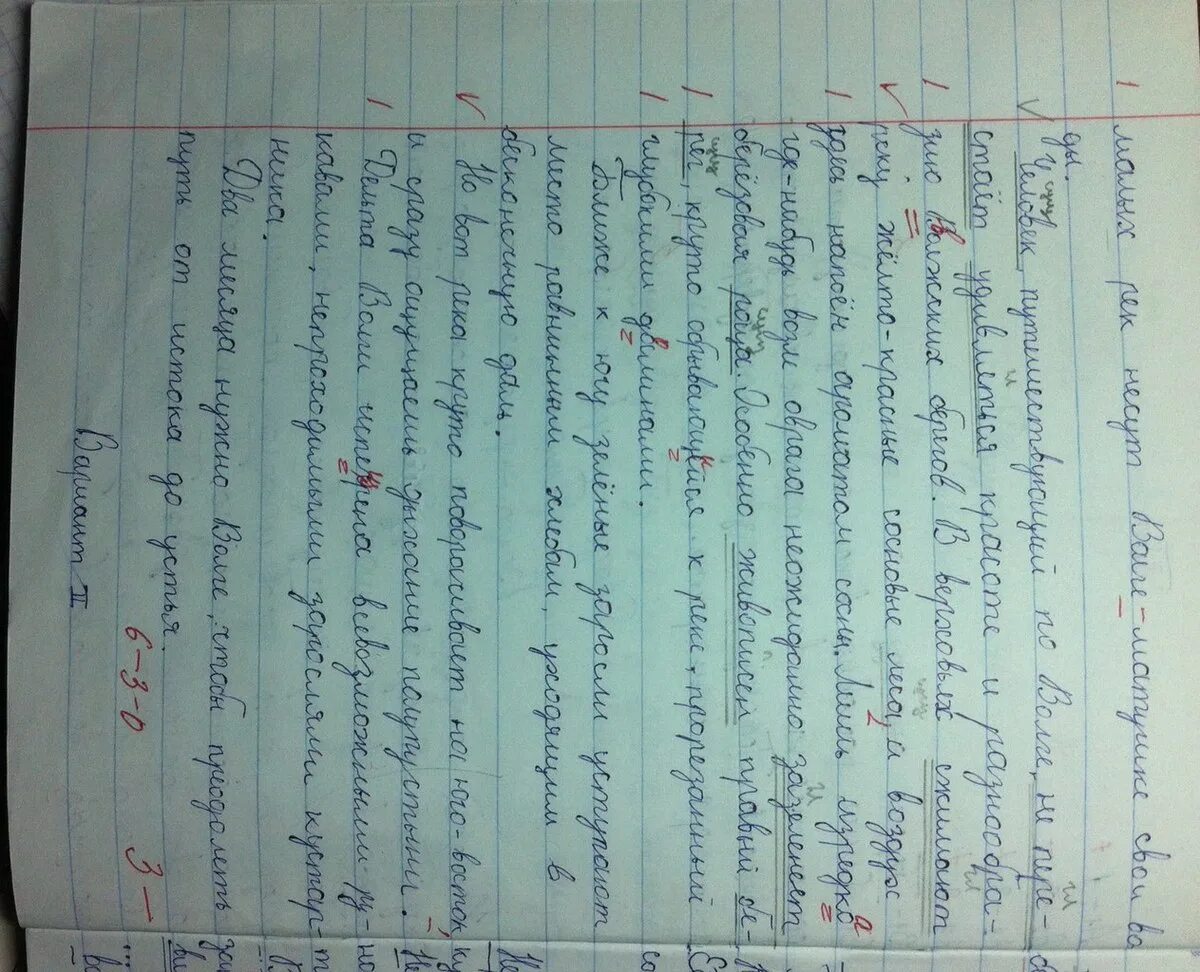 малых рек несут Волге-матушке свои во
ды.
Человек, путишествующий по Волге, не пере-
стаёт удивляться красоте и разнообра-
зию Волжских берегов. В верховьях сжимают
реку жёлто-красные сосновые леса, а воздух
здесь напоён ароматом сосны. Лишь изредка
где-нибудь возле оврага неожиданно зазеленеет
берёзовая роща. Особенно живописен правый бе-
рег, круто обрывающийся к реке, прорезанный
глубокими долинами.
Ближе к югу зелёные заросли уступают
место равнинным хлебам, уходящим в
бесконечную даль.
Но вот река круто поворачивает на юго-восток,
и сразу ощущаешь дыхание полупустыни.
Дельта Волги испещрена всевозможными ру-
кавами, непроходимыми зарослями кустар-
ника.
Два месяца нужно Волге, чтобы преодолеть
путь от истока до устья.
6-3-0 3-
Вариант II